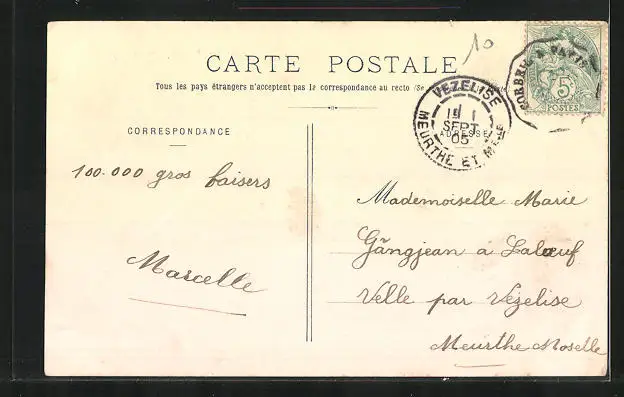 10
CARTE POSTALE
Tous les pays étrangers n'acceptent pas la correspondance au recto
CORRESPONDANCE
ADRESSE
5
POSTES
VEZELISE
SEPT
05
MEURTHE ET
100.000 gros baisers
Marcelle
Mademoiselle Marie
Gângjean à Lalœuf
Velle par Vezelise
Meurthe Moselle